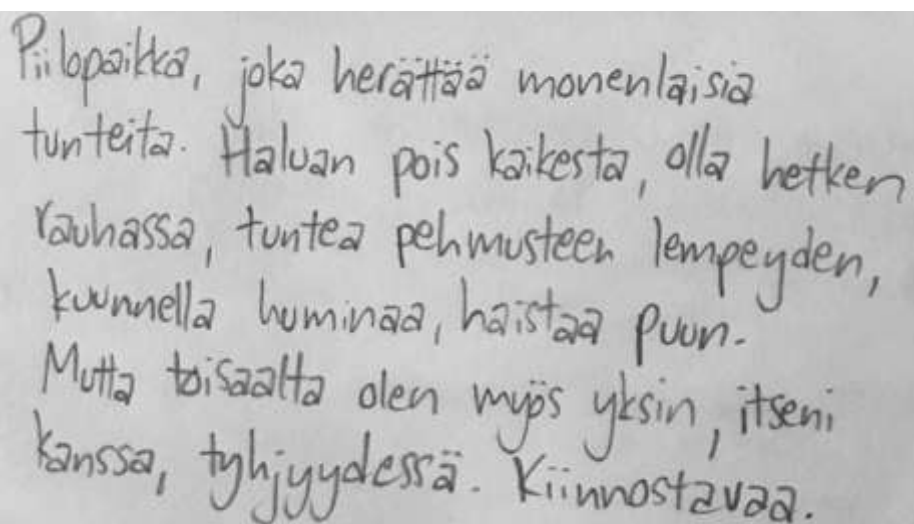 Piilopaikka, joka herättää monenlaisia
tunteita. Haluan pois kaikesta, olla hetken
rauhassa, tuntea pehmusteen lempeyden,
kuunnella huminaa, haistaa puun.
Mutta toisaalta olen myös yksin, itseni
kanssa, tyhjyydessä. Kiinnostavaa.